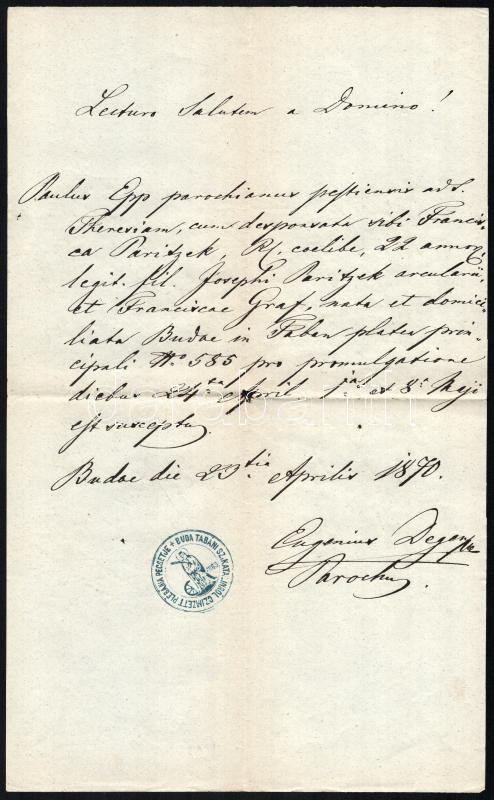 Lecturo Salutem a Domino!
Paulus Epp parochianus pestiensis ad S.
Theresiam, cum desponsata sibi Francis-
ca Paritzek, R. C., coelibe, 22 annor,
legit. fil. Josephi Paritzek arcularii,
et Franciscae Graf, nata et domici-
liata Budae in Taban platea prin-
cipali No 585 pro promulgatione
diebus 24ta April 1ma et 8a Maji
est susceptus
Budae die 23tia Aprilis 1870.
Eugenius Degen
Parochus.
BUDA TABÁNI SZ. KATAL. CZIMZETT PLÉBÁNIA PECSÉTJE
darabanth